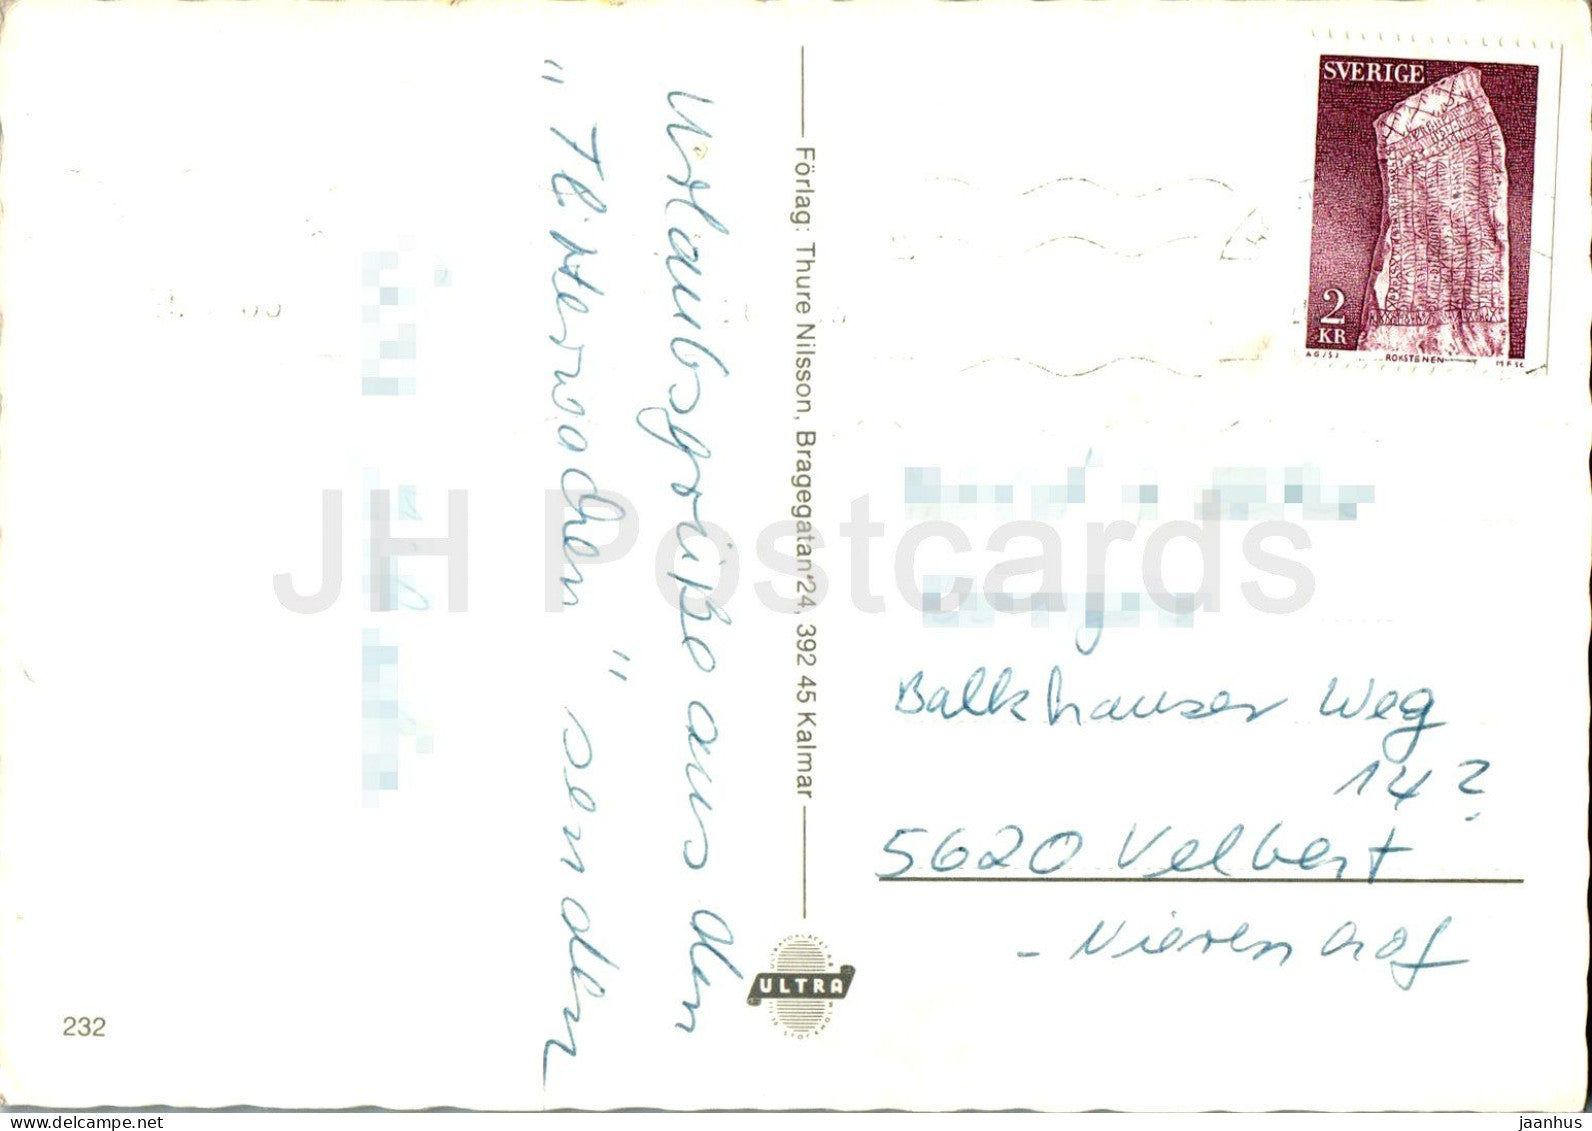 Urlaubsgrüße aus den
" Flitterwochen " senden
Förlag: Thure Nilsson, Bragegatan 24, 392 45 Kalmar
ULTRA
232
SVERIGE
2
KR
ROKSTENEN
Balkhauser Weg
14?
5620 Velbert
- Nierenhof
JH Postcards
www.delcampe.net
jaanhus